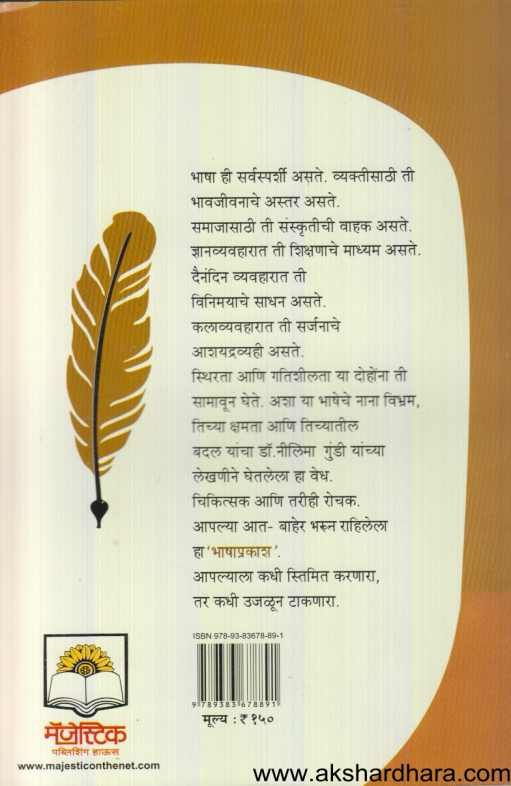 भाषा ही सर्वस्पर्शी असते. व्यक्तीसाठी ती
भावजीवनाचे अस्तर असते.
समाजासाठी ती संस्कृतीची वाहक असते.
ज्ञानव्यवहारात ती शिक्षणाचे माध्यम असते.
दैनंदिन व्यवहारात ती
विनिमयाचे साधन असते.
कलाव्यवहारात ती सर्जनाचे
आशयद्रव्यही असते.
स्थिरता आणि गतिशीलता या दोहोंना ती
सामावून घेते. अशा या भाषेचे नाना विभ्रम,
तिच्या क्षमता आणि तिच्यातील
बदल यांचा डॉ.नीलिमा गुंडी यांच्या
लेखणीने घेतलेला हा वेध.
चिकित्सक आणि तरीही रोचक.
आपल्या आत- बाहेर भरून राहिलेला
हा 'भाषाप्रकाश'.
आपल्याला कधी स्तिमित करणारा,
तर कधी उजळून टाकणारा.
ISBN 978-93-83678-89-1
9 789383 678891
मूल्य : ₹ १५०
मॅजेस्टिक
पब्लिशिंग हाऊस
www.majesticonthenet.com
www.akshardhara.com